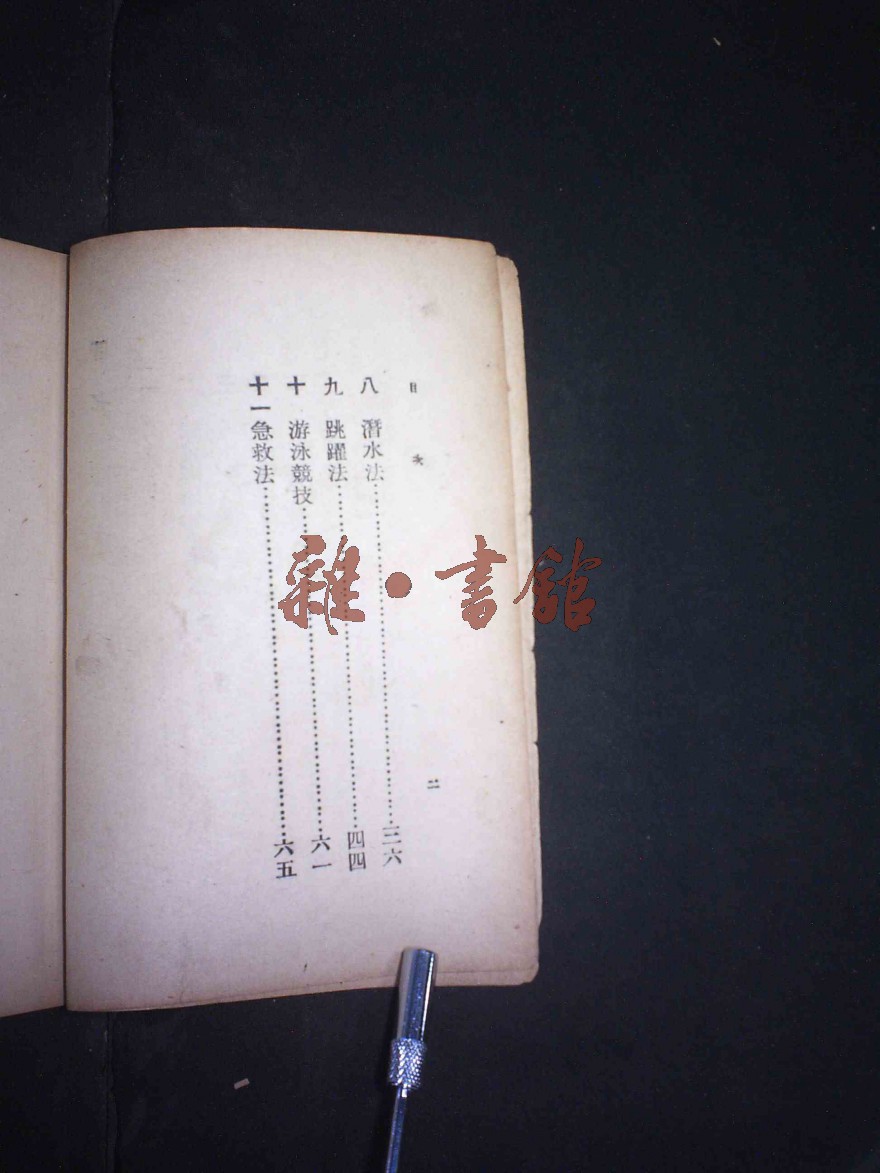 目次
二
八 潛水法……三六
九 跳躍法……四四
十 游泳競技……六一
十一 急救法……六五
雜·書館